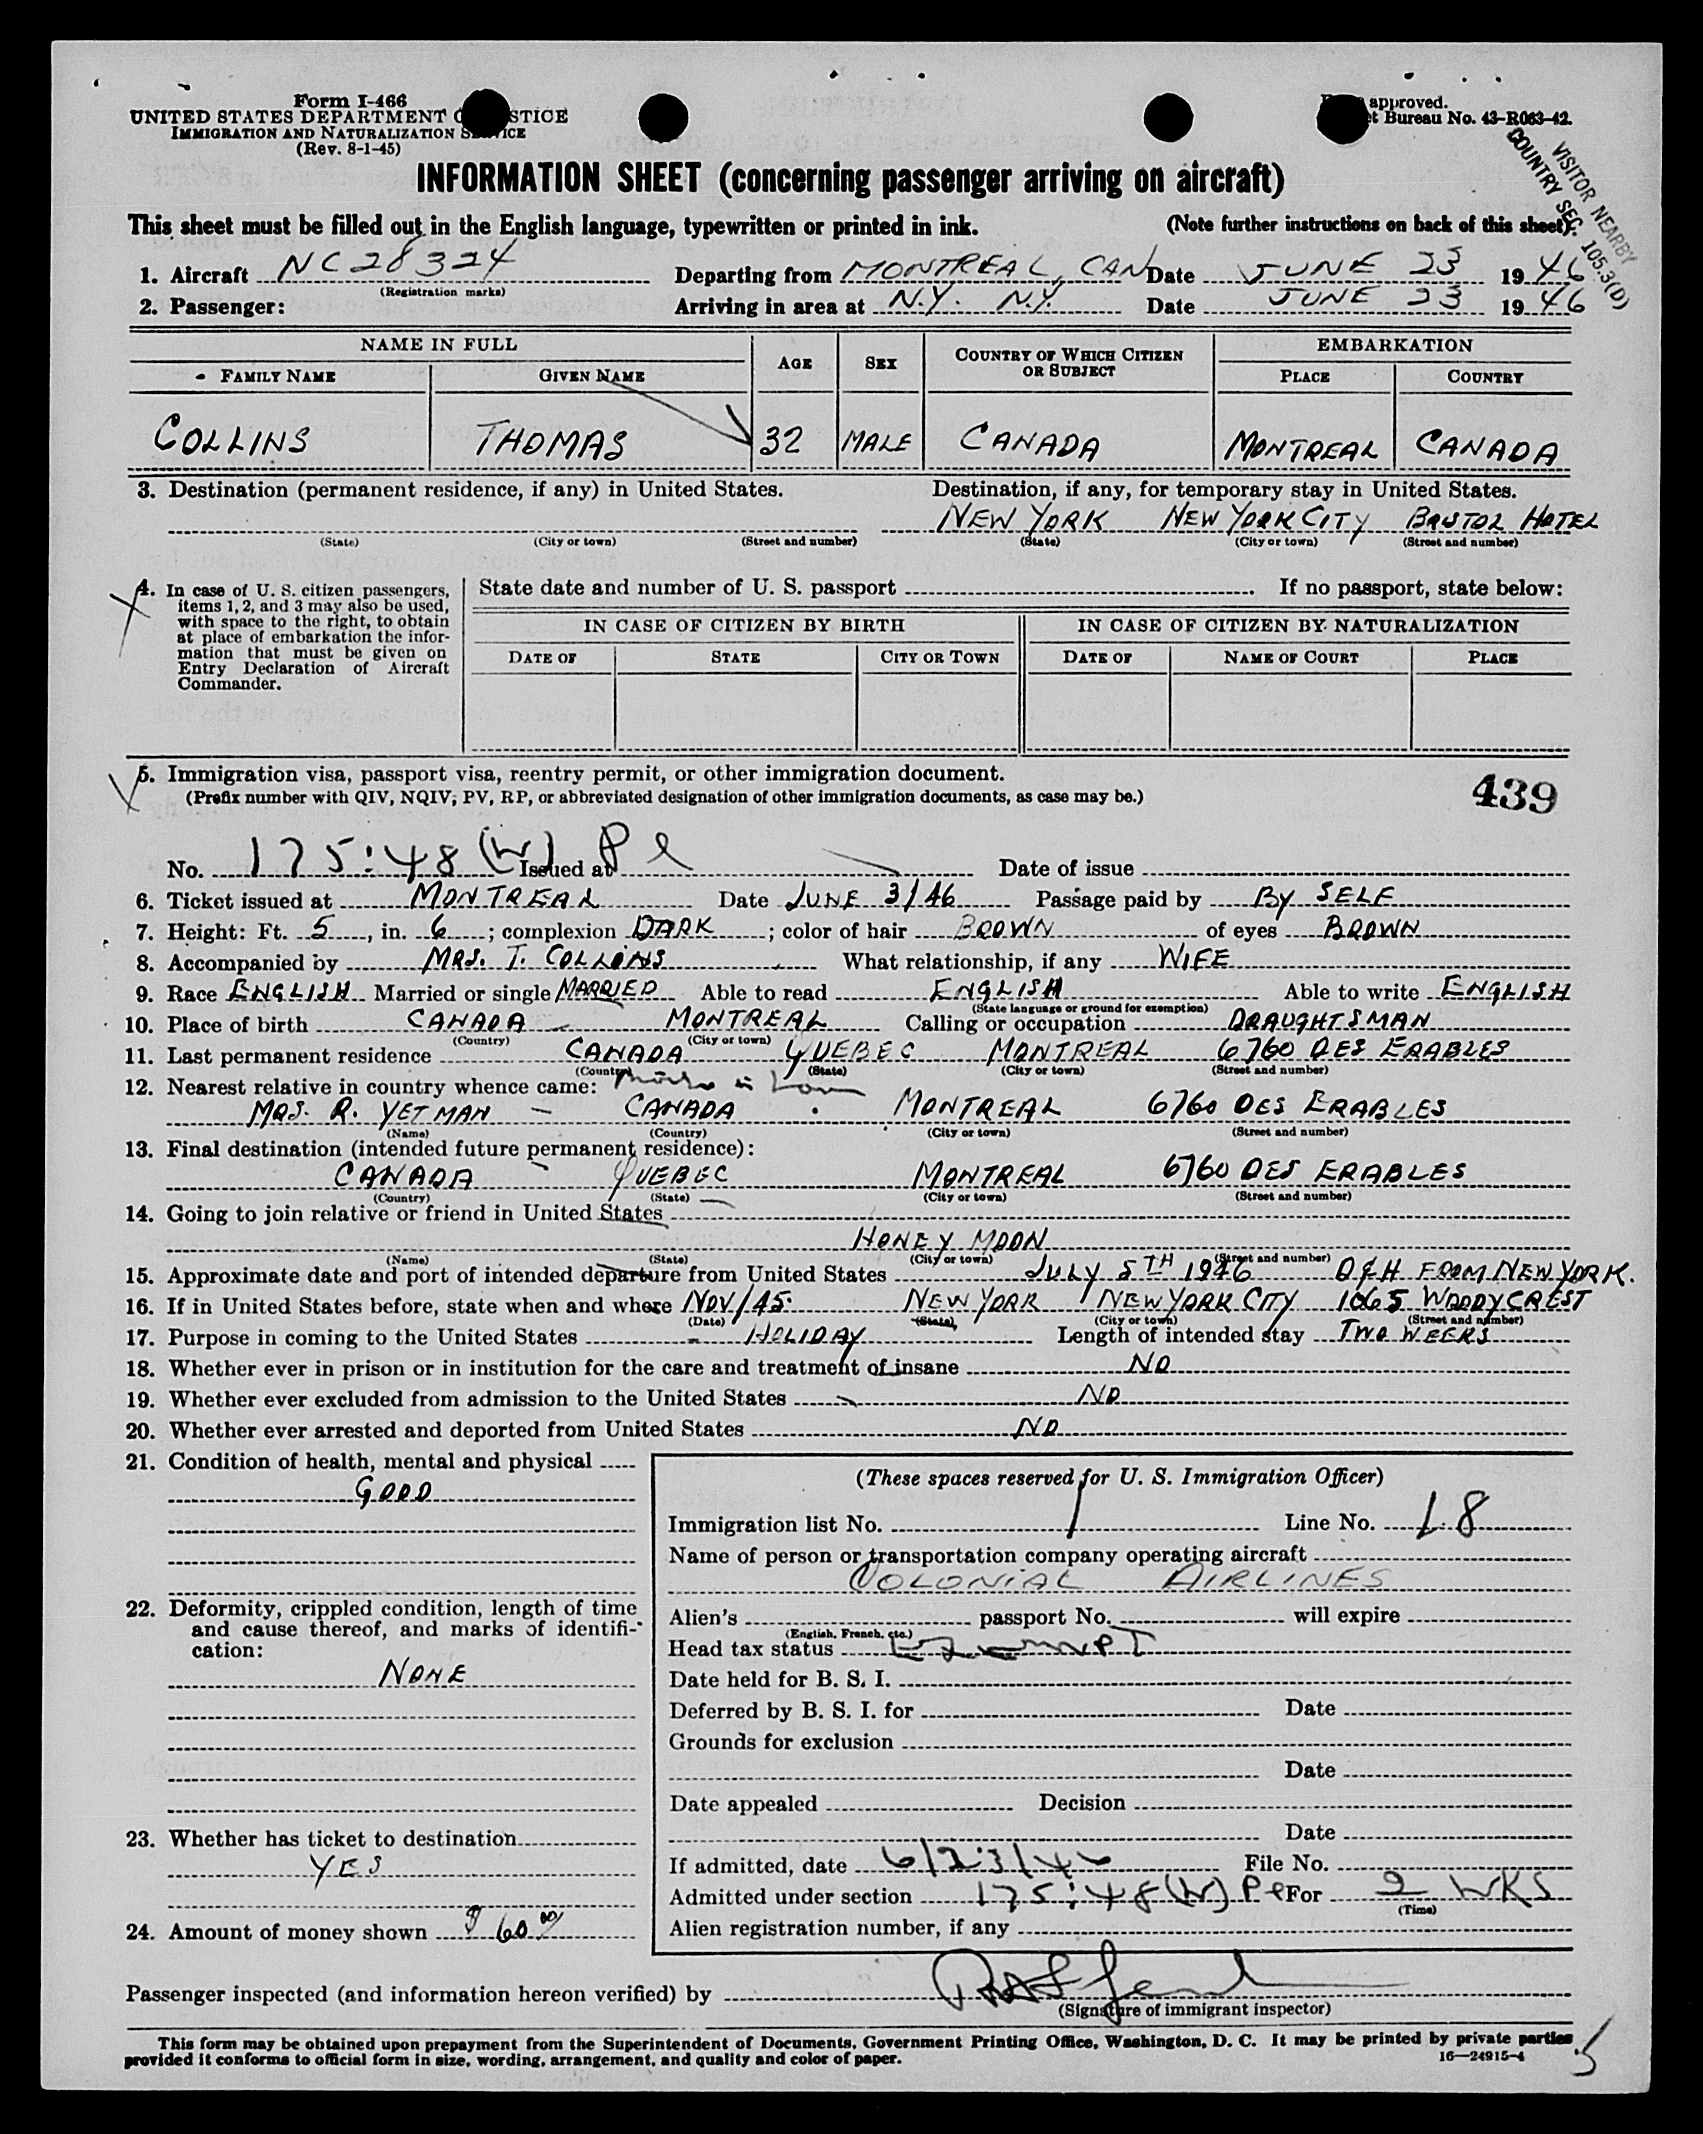 Form I-466
UNITED STATES DEPARTMENT STICE
IMMIGRATION AND NATURALIZATION SERVICE
(Rev. 8-1-45)
approved.
t Bureau No. 43-R063-42.
VISITOR NEARBY
COUNTRY SEC. 105.3(D)
INFORMATION SHEET (concerning passenger arriving on aircraft)
This sheet must be filled out in the English language, typewritten or printed in ink. (Note further instructions on back of this sheet).
1. Aircraft NC28324 Departing from MONTREAL, CAN Date JUNE 23 1946
(Registration marks)
2. Passenger: Arriving in area at N.Y. N.Y. Date JUNE 23 1946
NAME IN FULL AGE SEX COUNTRY OF WHICH CITIZEN OR SUBJECT EMBARKATION
FAMILY NAME GIVEN NAME PLACE COUNTRY
COLLINS THOMAS 32 MALE CANADA MONTREAL CANADA
3. Destination (permanent residence, if any) in United States. Destination, if any, for temporary stay in United States.
NEW YORK NEW YORK CITY BRISTOL HOTEL
(State) (City or town) (Street and number) (State) (City or town) (Street and number)
4. In case of U. S. citizen passengers, items 1, 2, and 3 may also be used, with space to the right, to obtain at place of embarkation the information that must be given on Entry Declaration of Aircraft Commander.
State date and number of U. S. passport . If no passport, state below:
IN CASE OF CITIZEN BY BIRTH IN CASE OF CITIZEN BY NATURALIZATION
DATE OF STATE CITY OR TOWN DATE OF NAME OF COURT PLACE
5. Immigration visa, passport visa, reentry permit, or other immigration document.
(Prefix number with QIV, NQIV, PV, RP, or abbreviated designation of other immigration documents, as case may be.)
439
No. 175:48 (W) Issued at Pl Date of issue
6. Ticket issued at MONTREAL Date JUNE 3/46 Passage paid by BY SELF
7. Height: Ft. 5, in. 6; complexion DARK; color of hair BROWN of eyes BROWN
8. Accompanied by MRS. T. COLLINS What relationship, if any WIFE
9. Race ENGLISH Married or single MARRIED Able to read ENGLISH Able to write ENGLISH
(State language or ground for exemption)
10. Place of birth CANADA MONTREAL Calling or occupation DRAUGHTSMAN
(Country) (City or town)
11. Last permanent residence CANADA QUEBEC MONTREAL 6760 DES ERABLES
(Country) (State) (City or town) (Street and number)
12. Nearest relative in country whence came:
MRS. R. YETMAN - CANADA MONTREAL 6760 DES ERABLES
(Name) (Country) (City or town) (Street and number)
13. Final destination (intended future permanent residence):
CANADA QUEBEC MONTREAL 6760 DES ERABLES
(Country) (State) (City or town) (Street and number)
14. Going to join relative or friend in United States
HONEY MOON
(Name) (State) (City or town) (Street and number)
15. Approximate date and port of intended departure from United States JULY 5TH 1946 D&H FROM NEW YORK.
16. If in United States before, state when and where NOV/45. NEW YORK NEW YORK CITY 1065 WOODYCREST
(Date) (State) (City or town) (Street and number)
17. Purpose in coming to the United States HOLIDAY Length of intended stay TWO WEEKS
18. Whether ever in prison or in institution for the care and treatment of insane NO
19. Whether ever excluded from admission to the United States NO
20. Whether ever arrested and deported from United States NO
21. Condition of health, mental and physical
GOOD
22. Deformity, crippled condition, length of time and cause thereof, and marks of identification:
NONE
23. Whether has ticket to destination
YES
24. Amount of money shown $60.00
(These spaces reserved for U. S. Immigration Officer)
Immigration list No. 1 Line No. 18
Name of person or transportation company operating aircraft
COLONIAL AIRLINES
Alien's passport No. will expire
(English, French, etc.)
Head tax status EXEMPT
Date held for B. S. I.
Deferred by B. S. I. for Date
Grounds for exclusion
Date
Date appealed Decision
Date
If admitted, date 6/23/46 File No.
Admitted under section 175:48(W) Pl For 2 WKS
(Time)
Alien registration number, if any
Passenger inspected (and information hereon verified) by
(Signature of immigrant inspector)
This form may be obtained upon prepayment from the Superintendent of Documents, Government Printing Office, Washington, D. C. It may be printed by private parties
provided it conforms to official form in size, wording, arrangement, and quality and color of paper. 16—24915-4